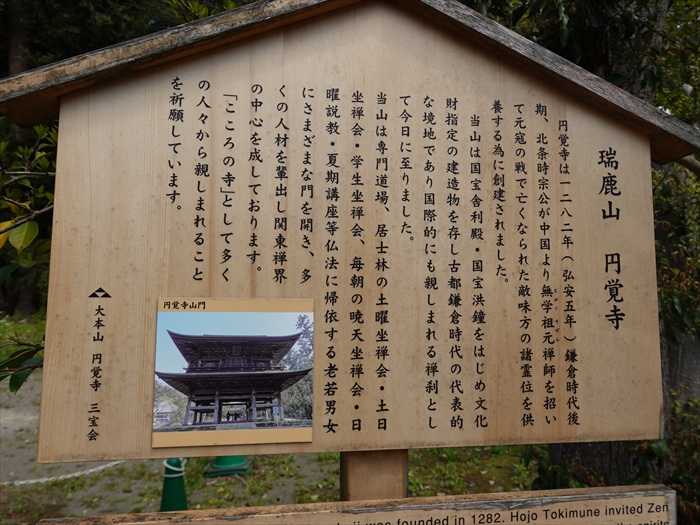 瑞鹿山　円覚寺
円覚寺は一二八二年（弘安五年）鎌倉時代後
期、北条時宗公が中国より無学祖元禅師を招い
て元寇の戦で亡くなられた敵味方の諸霊位を供
養する為に創建されました。
当山は国宝舎利殿・国宝洪鐘をはじめ文化
財指定の建造物を存し古都鎌倉時代の代表的
な境地であり国際的にも親しまれる禅刹とし
て今日に至りました。
当山は専門道場、居士林の土曜坐禅会・土日
坐禅会・学生坐禅会、毎朝の暁天坐禅会・日
曜説教・夏期講座等仏法に帰依する老若男女
にさまざまな門を開き、多
くの人材を輩出し関東禅界
の中心を成しております。
「こころの寺」として多く
の人々から親しまれること
を祈願しています。
円覚寺山門
大本山　円覚寺　三宝会
was founded in 1282. Hojo Tokimune invited Zen